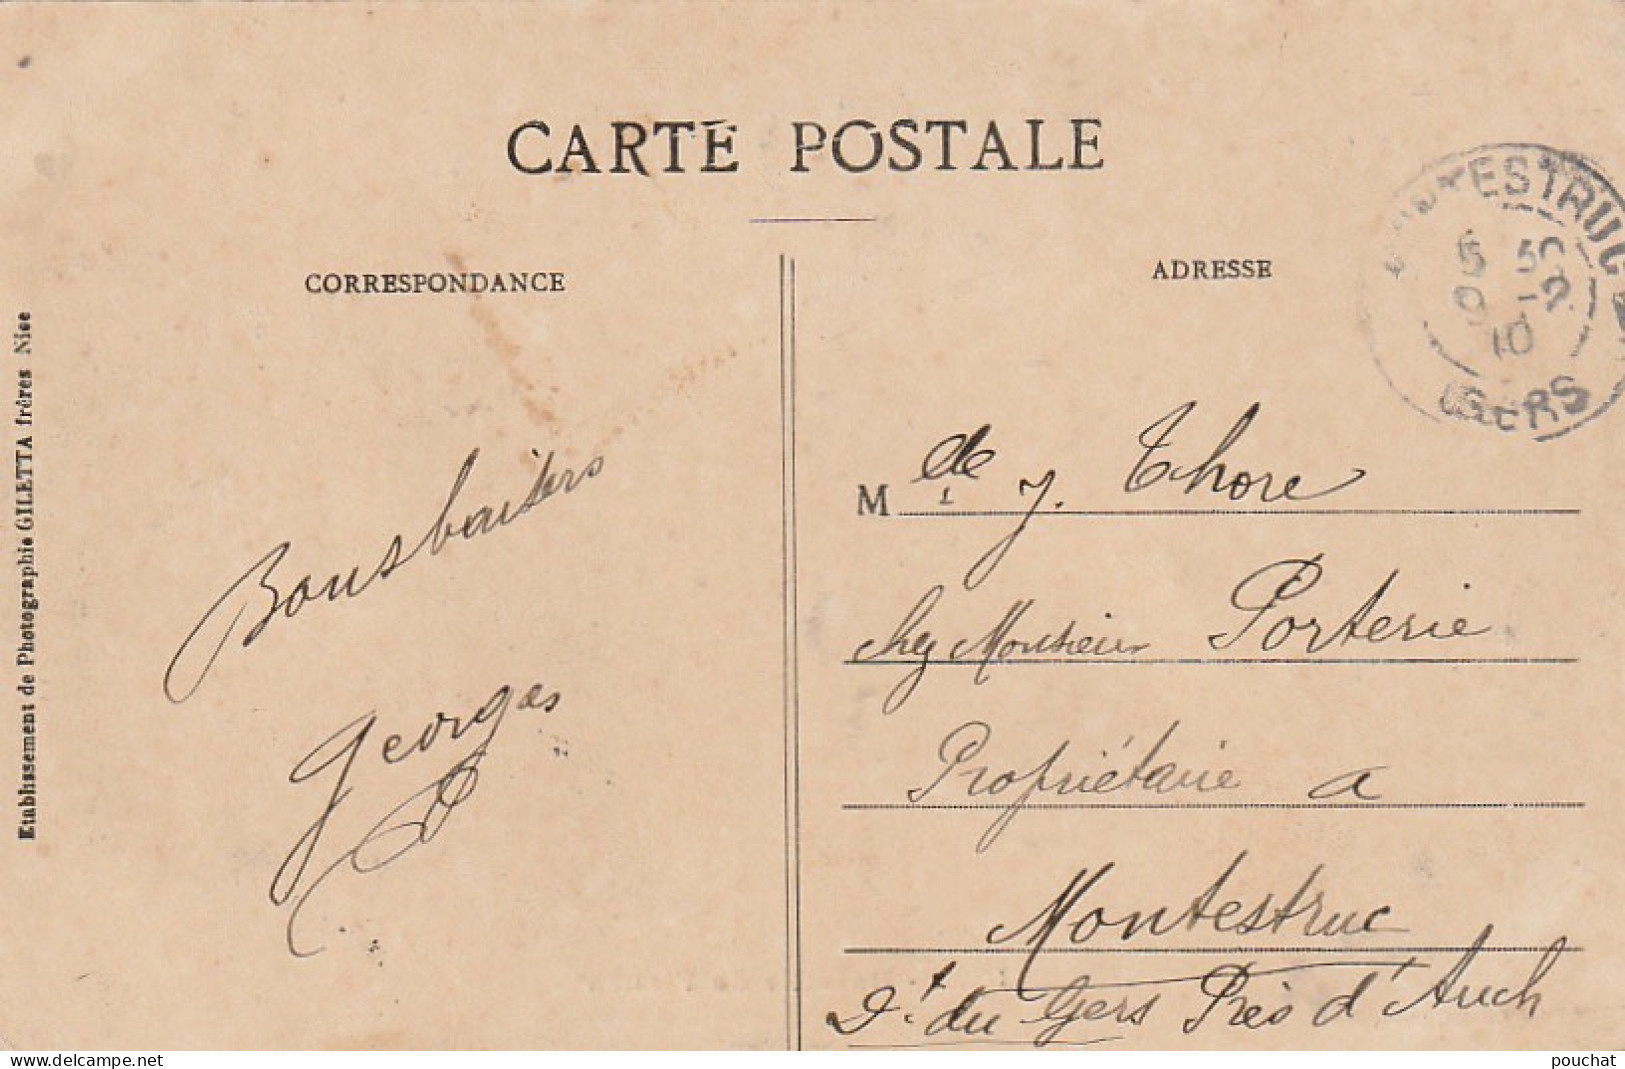 CARTE POSTALE
CORRESPONDANCE
ADRESSE
MONTESTRUC
5 30
9 -2
10
GERS
Etablissement de Photographie GILETTA frères Nice
Bonsbaisers
Georges
M de J. Thore
chez Monsieur Porterie
Propriétaire a
Montestruc
Dt. du Gers Près d'Auch
delcampe.net
pouchat